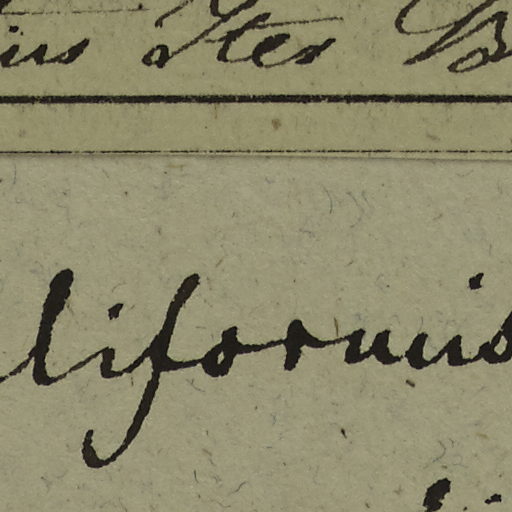 ius Iter B
liformis